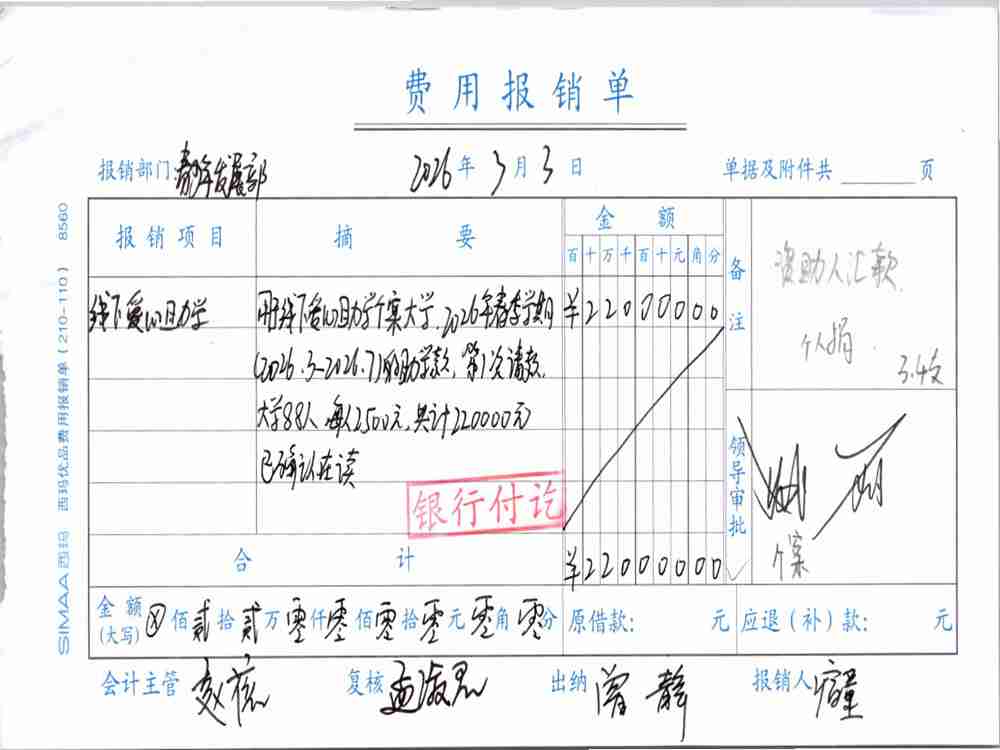 费用报销单
报销部门: 青少年发展部 2026年3月3日 单据及附件共 页
报销项目 摘要 金额 备注
百十万千百十元角分
线下爱心助学 用线下爱心助学个案大学.2026年春季学期 ¥22000000
(2026.3-2026.7)的助学款,第1次请款.
大学88人,每人2500元,共计220000元
已确认在读
银行付讫
资助人汇款.
个人捐.
3.4支
领导审批
个案
合计 ¥22000000
金额(大写) ⊗佰贰拾贰万零仟零佰零拾零元零角零分 原借款: 元 应退(补)款: 元
会计主管 复核 出纳 曾静 报销人
SIMAA西玛 西玛优品费用报销单(210-110) 8560